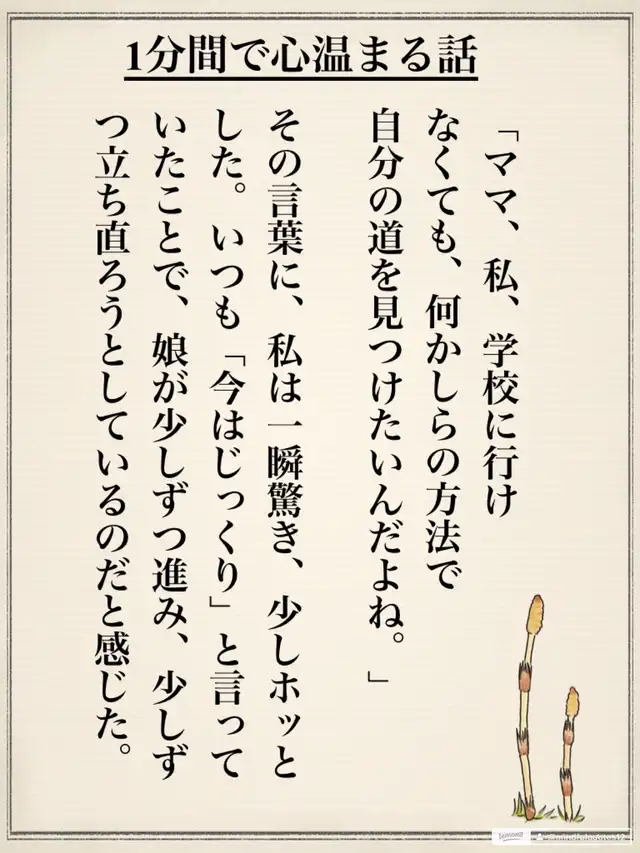 1分間で心温まる話
「ママ、私、学校に行け
なくても、何かしらの方法で
自分の道を見つけたいんだよね。」
その言葉に、私は一瞬驚き、少しホッと
した。いつも「今はじっくり」と言って
いたことで、娘が少しずつ進み、少しず
つ立ち直ろうとしているのだと感じた。